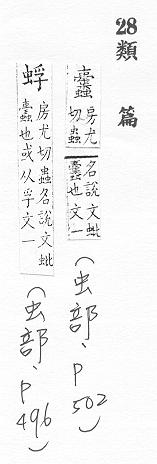 28 類篇
房尤
切蟲
名說文蚍
也文一
(虫部、P502)
蜉
房尤切蟲名說文蚍
也或从孚文一
(虫部、P496)